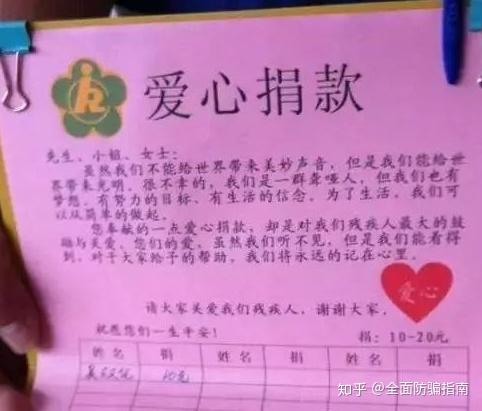 爱心捐款
先生、小姐、女士：
虽然我们不能给世界带来美妙声音，但是我们能给世
界带来光明。很不幸的，我们是一群聋哑人，但我们也有
梦想，有努力的目标，有生活的信念。为了生活，我们可
以从简单的做起。
您奉献的一点爱心捐款，却是对我们残疾人最大的鼓
励与关爱。您们的爱，虽然我们听不见，但是我们能看得
到，对于大家给予的帮助，我们将永远的记在心里。
爱心
请大家关爱我们残疾人，谢谢大家。
祝愿您们一生平安！
捐：10-20元
姓名 捐 姓名 捐 姓名
10元
知乎 @全面防骗指南